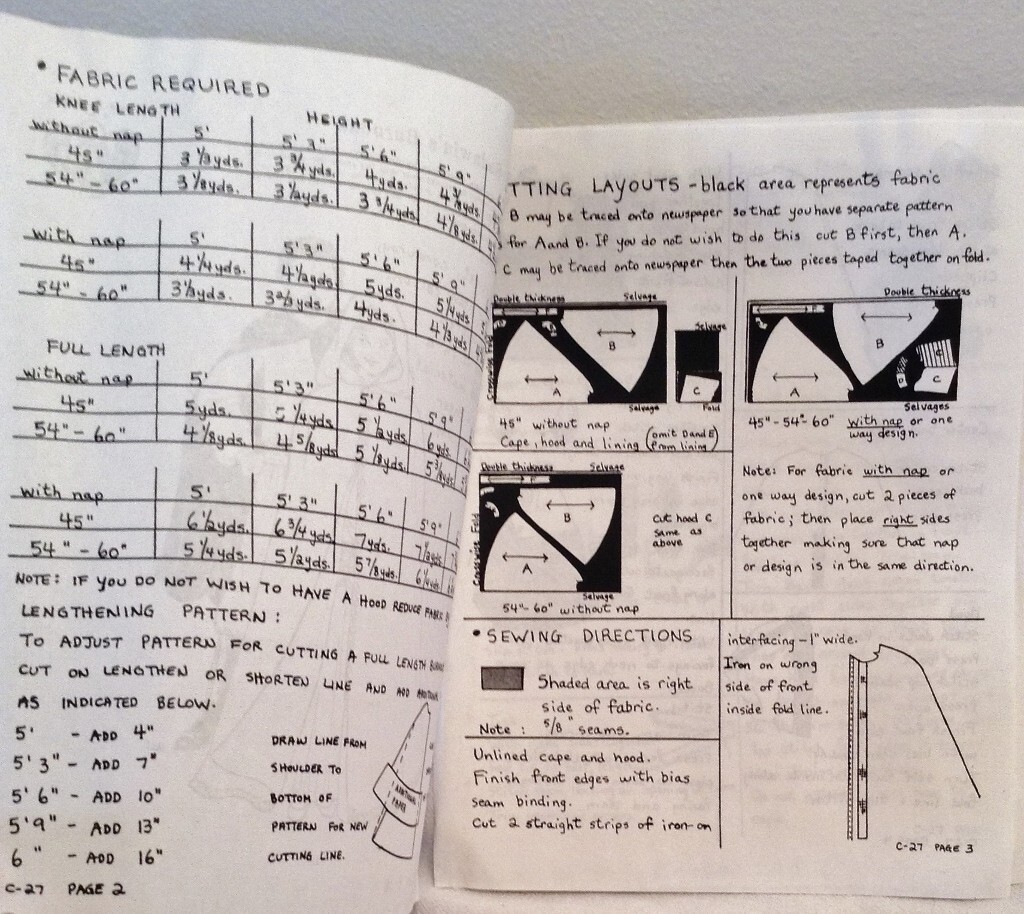 • FABRIC REQUIRED
KNEE LENGTH HEIGHT
without nap 5' 5'3" 5'6" 5'9"
45" 3 1/3 yds. 3 3/4 yds. 4 yds. 4 3/8 yds.
54"-60" 3 1/8 yds. 3 1/2 yds. 3 3/4 yds. 4 1/8 yds.
with nap 5' 5'3" 5'6" 5'9"
45" 4 1/4 yds. 4 1/2 yds. 5 yds. 5 1/4 yds.
54"-60" 3 1/3 yds. 3 2/3 yds. 4 yds. 4 1/3 yds.
FULL LENGTH
without nap 5' 5'3" 5'6" 5'9"
45" 5 yds. 5 1/4 yds. 5 1/2 yds. 6 yds.
54"-60" 4 1/8 yds. 4 5/8 yds. 5 1/8 yds.
with nap 5' 5'3" 5'6" 5'9"
45" 6 1/2 yds. 6 3/4 yds. 7 yds. 7 1/2 yds.
54"-60" 5 1/4 yds. 5 1/2 yds. 5 7/8 yds.
NOTE: IF YOU DO NOT WISH TO HAVE A HOOD REDUCE FABRIC
LENGTHENING PATTERN:
TO ADJUST PATTERN FOR CUTTING A FULL LENGTH
CUT ON LENGTHEN OR SHORTEN LINE AND ADD ADDITIONAL
AS INDICATED BELOW.
5' - ADD 4"
5'3" - ADD 7"
5'6" - ADD 10"
5'9" - ADD 13"
6" - ADD 16"
DRAW LINE FROM
SHOULDER TO
BOTTOM OF
PATTERN FOR NEW
CUTTING LINE.
ADDITIONAL
PAPER
C-27 PAGE 2
TTING LAYOUTS - black area represents fabric
B may be traced onto newspaper so that you have separate pattern
for A and B. If you do not wish to do this cut B first, then A.
C may be traced onto newspaper then the two pieces taped together on fold.
Double thickness Selvage
Crosswise Fold
A
B
Selvage
Selvage
C
Fold
45" without nap
Cape, hood and lining (omit D and E from lining)
Double thickness
A
B
C
D
Selvages
45"-54"-60" with nap or one
way design.
Double thickness Selvage
Crosswise Fold
A
B
Selvage
54"-60" without nap
Cut hood C
same as
above
Note: For fabric with nap or
one way design, cut 2 pieces of
fabric; then place right sides
together making sure that nap
or design is in the same direction.
• SEWING DIRECTIONS
Shaded area is right
side of fabric.
Note: 5/8" seams.
Unlined cape and hood.
Finish front edges with bias
seam binding.
Cut 2 straight strips of iron-on
interfacing - 1" wide.
Iron on wrong
side of front
inside fold line.
C-27 PAGE 3